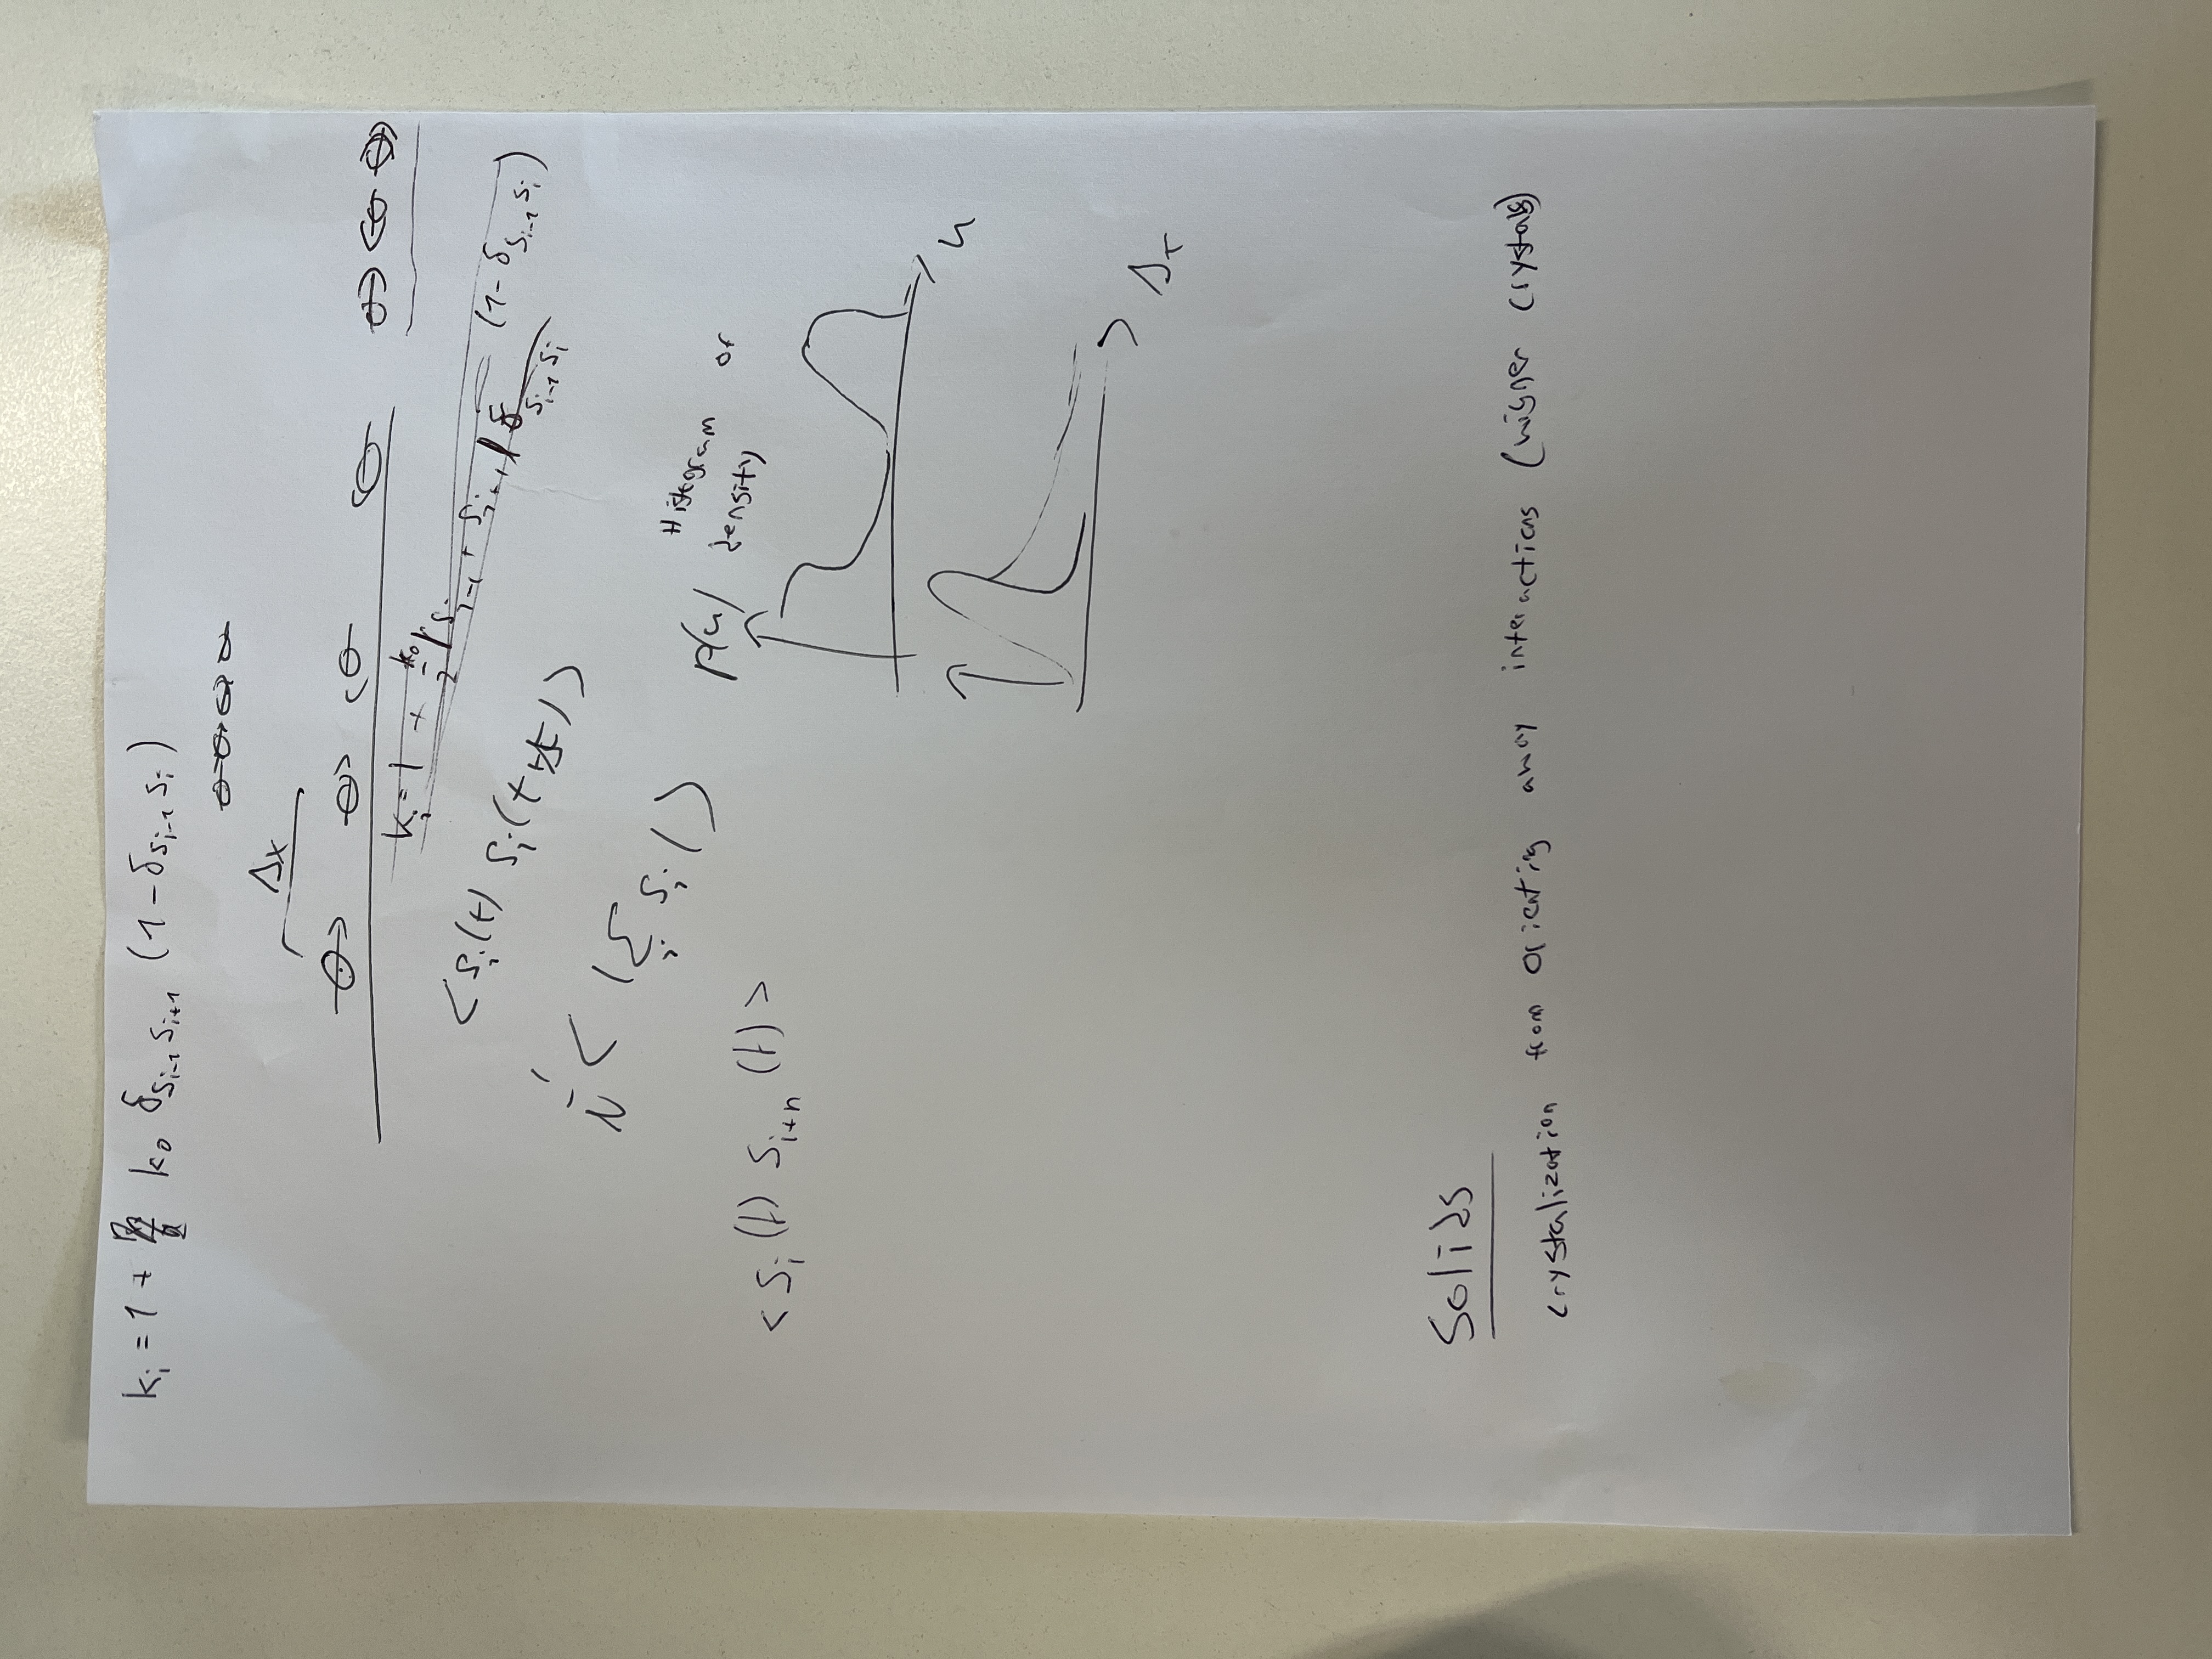 kᵢ = 1 + k₀ δ_{sᵢ₋₁ sᵢ₊₁} (1 - δ_{sᵢ₋₁ sᵢ})
Δx
kᵢ = 1 + k₀/2 |sᵢ₋₁ + sᵢ₊₁| (1 - δ_{sᵢ₋₁ sᵢ})
δ_{sᵢ₋₁ sᵢ}
< sᵢ(t) sᵢ(t+ ) >
1/N < |Σᵢ sᵢ| >
< sᵢ(t) sᵢ₊ₙ(t) >
p(n) Histogram of
density
n
Δx
Solids
crystalization from orienting away interactions (wigner crystals)